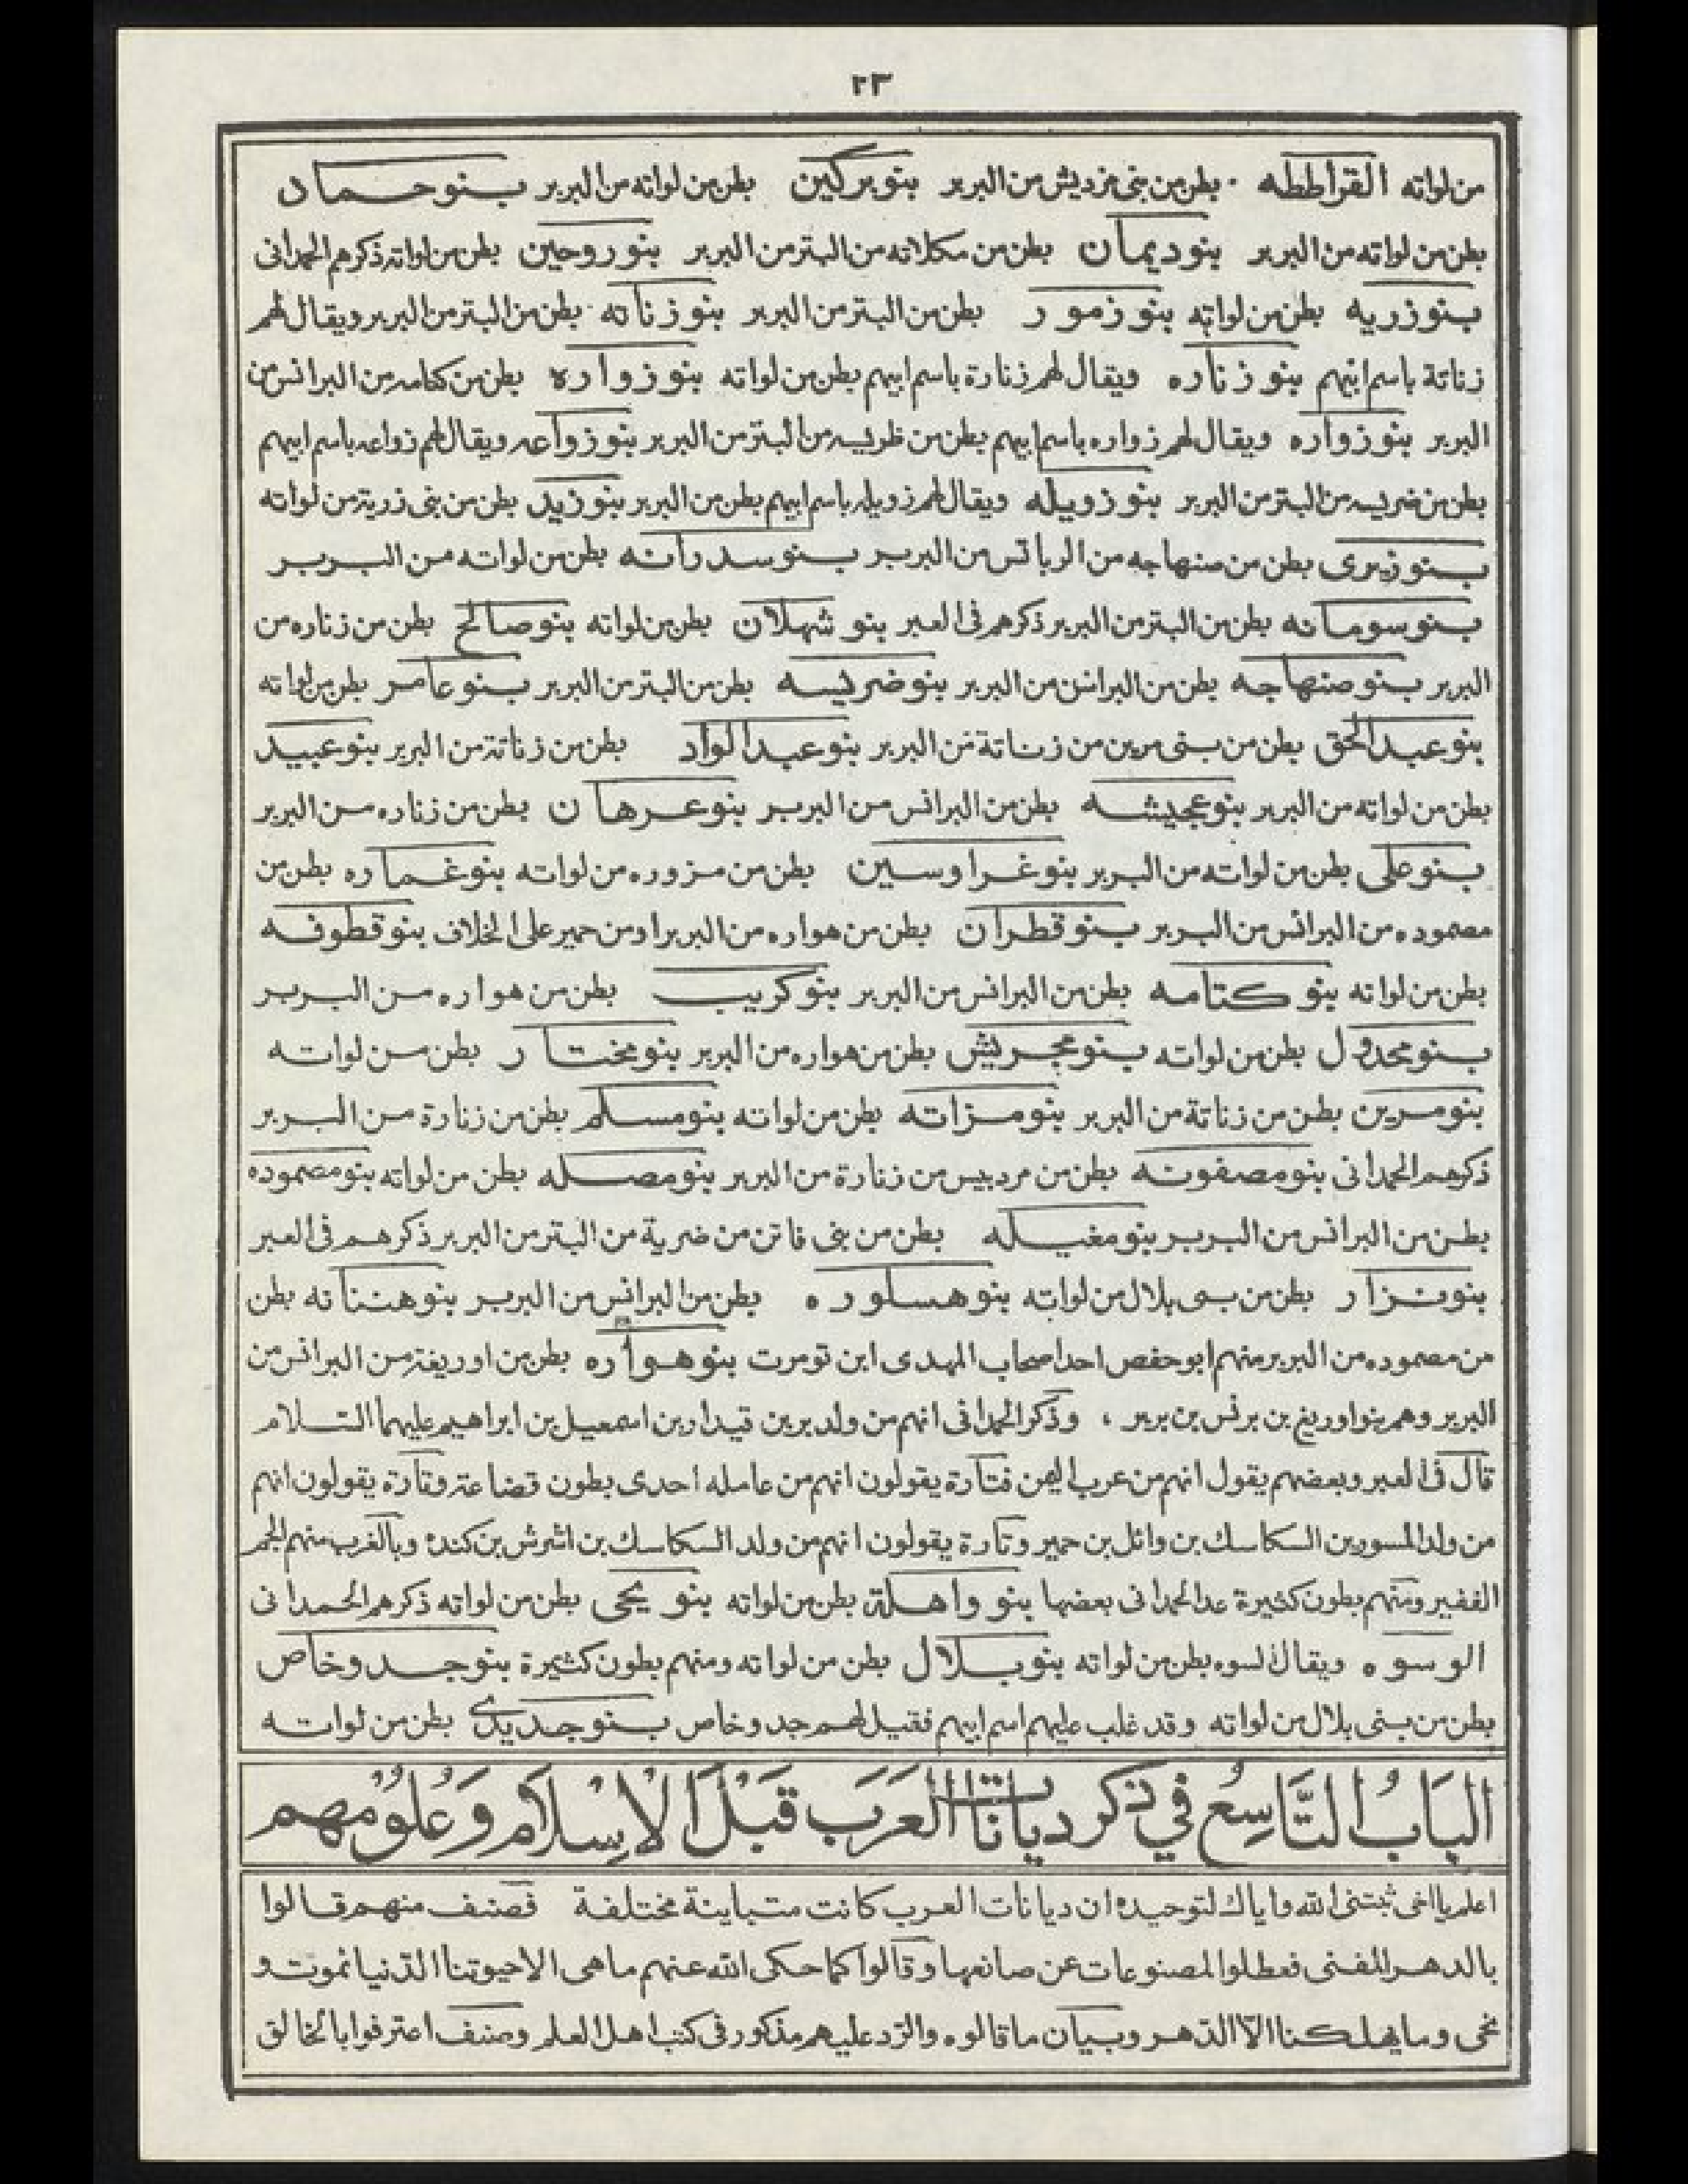 ٢٣
من لواته القراططه . بطن من بنى مزديش من البربر بنو بركين بطن من لواته من البربر بنو حماد
بطن من لواته من البربر بنو ديمان بطن من مكلاته من البتر من البربر بنو روحين بطن من لواته ذكرهم الحمدانى
بنو زريه بطن من لواته بنو زمور بطن من البتر من البربر بنو زناته بطن من البتر من البربر ويقال لهم
زناتة باسم ابيهم بنو زناره ويقال لهم زنارة باسم ابيهم بطن من لواته بنو زواره بطن من كتامه من البرانس من
البربر بنو زواره ويقال لهم زواره باسم ابيهم بطن من ظريسه من البتر من البربر بنو زواعه ويقال لهم زواعه باسم ابيهم
بطن من ضريسه من البتر من البربر بنو زويله ويقال لهم زويله باسم ابيهم بطن من البربر بنو زيد بطن من بنى زرية من لواته
بنو زيرى بطن من صنهاجه من الرباتس من البربر بنو سدراته بطن من لواته من البربر
بنو سوماته بطن من البتر من البربر ذكرهم فى العبر بنو شهلان بطن من لواته بنو صالح بطن من زناره من
البربر بنو صنهاجه بطن من البرانس من البربر بنو ضريسه بطن من البتر من البربر بنو عامر بطن من لواته
بنو عبد الحق بطن من بنى مرين من زناتة من البربر بنو عبد الواد بطن من زناتة من البربر بنو عبيد
بطن من لواته من البربر بنو عجيشه بطن من البرانس من البربر بنو عرهان بطن من زناره من البربر
بنو على بطن من لواته من البربر بنو غراوسين بطن من مزوره من لواته بنو غماره بطن من
مصموده من البرانس من البربر بنو قطران بطن من هواره من البربر او من حمير على الخلاف بنو قطوفه
بطن من لواته بنو كتامه بطن من البرانس من البربر بنو كريب بطن من هواره من البربر
بنو مجدول بطن من لواته بنو مجريش بطن من هواره من البربر بنو مختار بطن من لواته
بنو مرين بطن من زناتة من البربر بنو مزاته بطن من لواته بنو مسلم بطن من زنارة من البربر
ذكرهم الحمدانى بنو مصفونه بطن من مرديس من زنارة من البربر بنو مصله بطن من لواته بنو مصموده
بطن من البرانس من البربر بنو مغيله بطن من بنى فاتن من ضرية من البتر من البربر ذكرهم فى العبر
بنو نزار بطن من بنى بلال من لواته بنو هسلوره بطن من البرانس من البربر بنو هنتاته بطن
من مصموده من البربر منهم ابو حفص احد اصحاب المهدى ابن تومرت بنو هواره بطن من اوريغة من البرانس من
البربر وهم بنو اوريغ بن برنس بن بربر ، وذكر الحمدانى انهم من ولد بربن قيدار بن اسمعيل بن ابراهيم عليهما السلام
قال فى العبر وبعضهم يقول انهم من عرب اليمن فتارة يقولون انهم من عامله احدى بطون قضاعة وتارة يقولون انهم
من ولد المسور بن السكاسك بن وائل بن حمير وتارة يقولون انهم من ولد السكاسك بن اشرش بن كنده وبالغرب منهم الجم
الغفير ومنهم بطون كثيرة عد الحمدانى بعضها بنو واهلة بطن من لواته بنو يحى بطن من لواته ذكرهم الحمدانى
الوسوه ويقال لسوه بطن من لواته بنو بلال بطن من لواته ومنهم بطون كثيرة بنو جد وخاص
بطن من بنى بلال من لواته وقد غلب عليهم اسم ابيهم فقيل لهم جد وخاص بنو جديدى بطن من لواته
البَابُ التَّاسِعُ في ذكر ديانات العَرَب قَبْلَ الاِسْلَام وَعُلوُمهم
اعلم يا اخى ثبتنى الله واياك لتوحيده ان ديانات العرب كانت متباينة مختلفة فصنف منهم قالوا
بالدهر المفنى فعطلوا المصنوعات عن صانعها وقالوا كما حكى الله عنهم ما هى الاحيوتنا الدّنيا نموت و
نحى وما يهلكنا الّا الدّهر وبيان ما قالوه والرّد عليهم مذكور فى كتب اهل العلم وصنف اعترفوا بالخالق